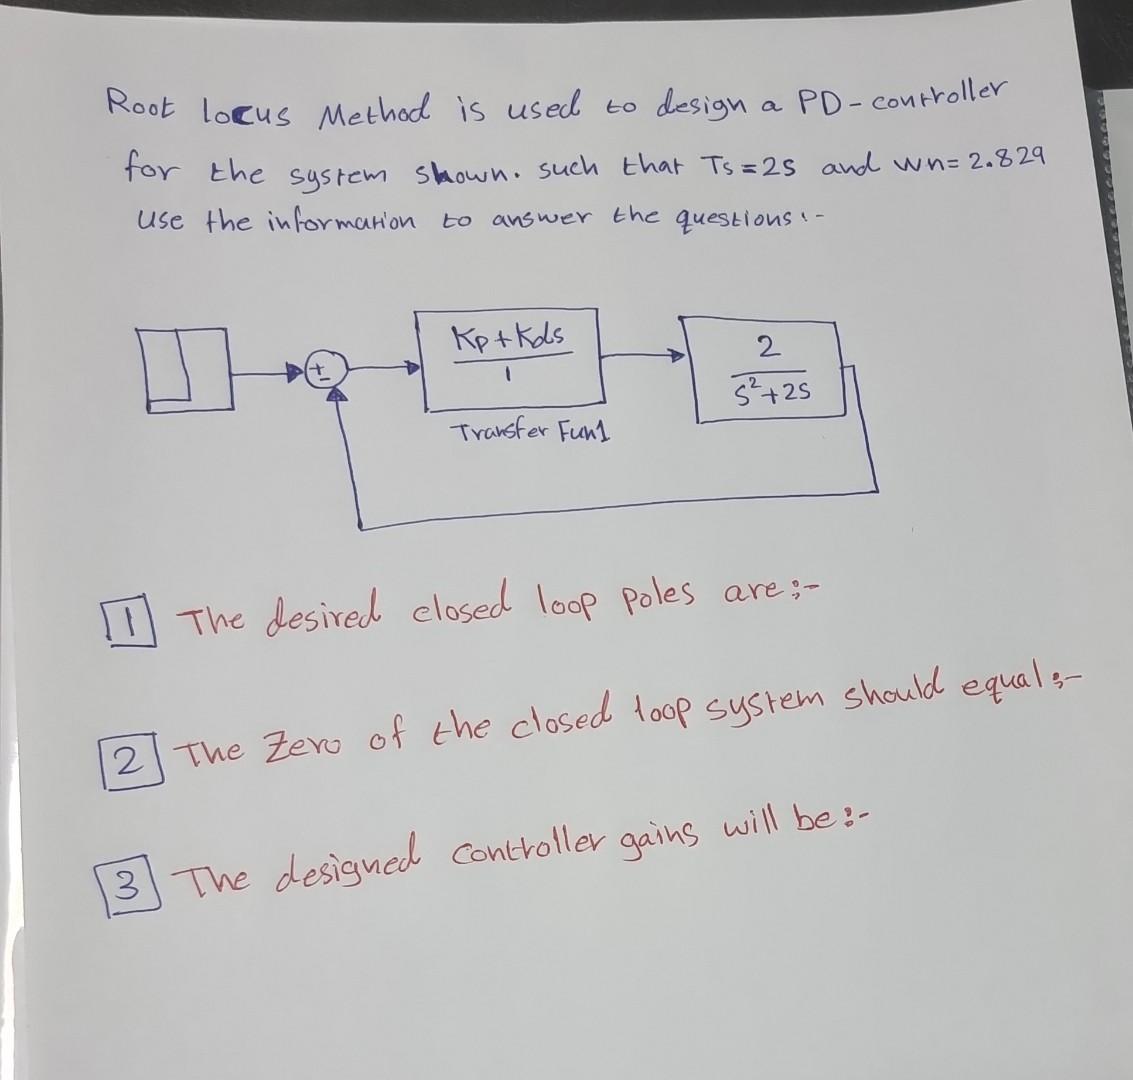 Root locus Method is used to design a PD-controller
for the system shown. such that Ts=2s and wn=2.829
Use the information to answer the questions:-
Kp+Kds
1
2
s²+2s
±
-
Transfer Fun1
1 The desired closed loop poles are:-
2 The Zero of the closed loop system should equal:-
3 The designed controller gains will be:-